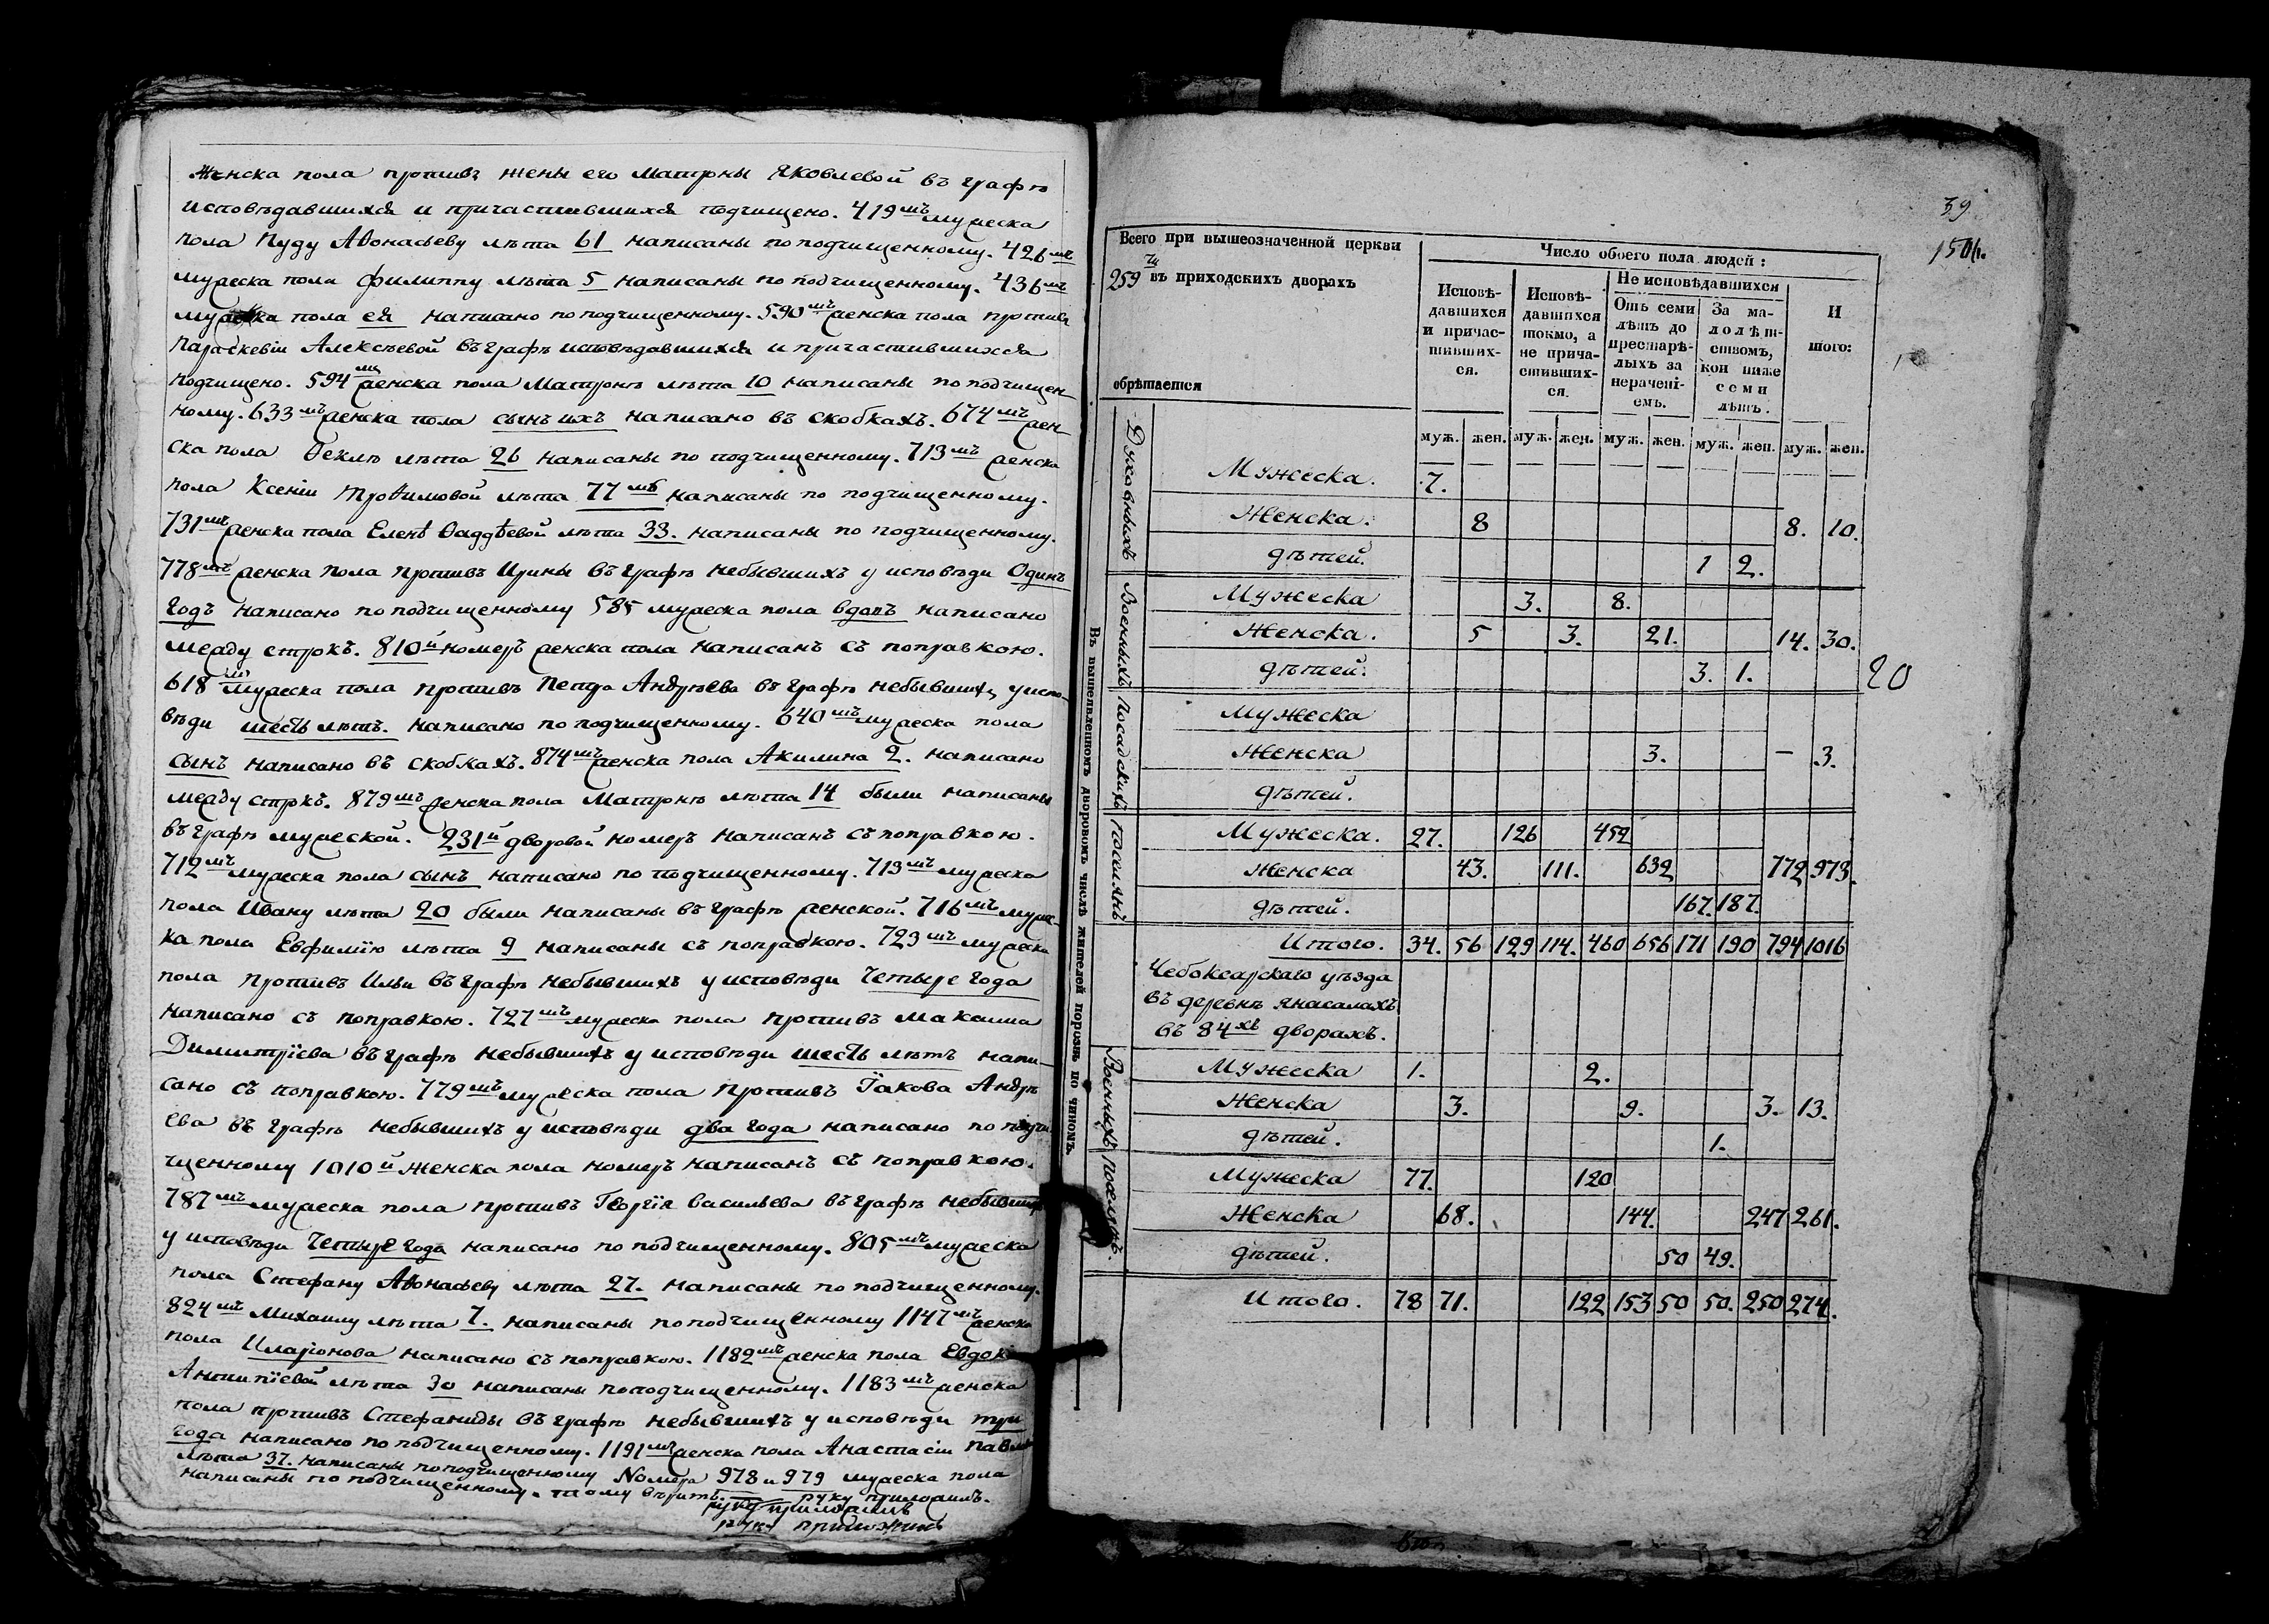 Женска пола противъ жены его Матрны Яковлевой въ графѣ
исповѣдавшихся и причастившихся подчищено. 419мъ мужеска
пола Пуду Аѳонасьеву лѣта 61 написаны по подчищенному. 426мъ
мужеска пола Филиппу лѣта 5 написаны по подчищенному. 436мъ
пола ея написано по подчищенному. 590мъ женска пола противъ
Параскевіи Алексѣевой въ графѣ исповѣдавшихся и причастившихся
подчищено. 594мъ женска пола Матронѣ лѣта 10 написаны по подчищен
ному. 633мъ женска пола сынъ ихъ написано въ скобкахъ. 674мъ жен
ска пола Ѳеклѣ лѣта 26 написаны по подчищенному. 713мъ женска
пола Ксеніи Троѳимовой лѣта 77мъ написаны по подчищенному.
731мъ женска пола Еленѣ Ѳаддѣевой лѣта 33. написаны по подчищенному.
778мъ женска пола противъ Ирины въ графѣ небывшихъ у исповѣди Одинъ
годъ написано по подчищенному 585 мужеска пола вдовъ написано
между строкъ. 810й номеръ женска пола написанъ съ поправкою.
618мъ мужеска пола противъ Петра Андрѣева въ графѣ небывшихъ у испо
вѣди шесть лѣтъ. написано по подчищенному. 640мъ мужеска пола
сынъ написано въ скобкахъ. 874мъ женска пола Акилина 2. написано
между строкъ. 879мъ женска пола Матронѣ лѣта 14 были написаны
въ графѣ мужеской. 231й дворовой номеръ написанъ съ поправкою.
712мъ мужеска пола сынъ написано по подчищенному. 713мъ мужеска
пола Ивану лѣта 20 были написаны въ графѣ женской. 716мъ мужес-
ка пола Евфимію лѣта 9 написаны съ поправкою. 723мъ мужеска
пола противъ Ильи въ графѣ небывшихъ у исповѣди Четыре года
написано съ поправкою. 727мъ мужеска пола противъ Максима
Димитріева въ графѣ небывшихъ у исповѣди шесть лѣтъ напи-
сано съ поправкою. 779мъ мужеска пола противъ Іакова Андрѣ
ева въ графѣ небывшихъ у исповѣди два года написано по подчи
щенному 1010й Женска пола номеръ написанъ съ поправкою.
787мъ мужеска пола противъ Георгія Васильева въ графѣ небывших
у исповѣди Четыре года написано по подчищенному. 805мъ мужеска
пола Стефану Аѳонасьеву лѣта 27. написаны по подчищенному.
824мъ Михаилу лѣта 7. написаны по подчищенному 1147мъ женска
пола Иларіонова написано съ поправкою. 1182мъ женска пола Евдокі
Антипіевой лѣта 30 написаны по подчищенному. 1183мъ женска
пола противъ Стефаниды въ графѣ небывшихъ у исповѣди три
года написано по подчищенному. 1191мъ женска пола Анастасіи Павло
лѣта 37. написаны по подчищенному Nомера 978 и 979 мужеска пола
написаны по подчищенному. руку приложилъ.
руку приложилъ
руку приложилъ
39
150
Всего при вышеозначенной церкви
259ти въ приходскихъ дворахъ
обрѣтается
Число обоего пола людей:
Исповѣ-
давшихся
и причас-
тивших-
ся.
Исповѣ-
давшихся
токмо, а
не прича-
стивших-
ся.
Не исповѣдавшихся
Отъ семи
лѣтъ до
престарѣ-
лыхъ за
нерачені-
емъ.
За ма-
лолѣт-
ствомъ,
кои ниже
семи
лѣтъ.
И
того:
муж. жен. муж. жен. муж. жен. муж. жен. муж. жен.
Въ вышеявленномъ дворовомъ числѣ жителей порознь по чиномъ.
Духовныхъ
Мужеска. 7.
Женска. 8 8. 10.
дѣтей. 1 2.
Военныхъ
Мужеска 3. 8.
Женска. 5 3. 21. 14. 30.
дѣтей. 3. 1.
20
Посадскихъ
Мужеска
Женска 3. — 3.
дѣтей.
Поселянъ
Мужеска. 27. 126 452
Женска 43. 111. 632 772 973.
дѣтей. 167. 187.
Итого. 34. 56 129 114. 460 656 171 190 794 1016
Чебоксарскаго уѣзда
въ деревнѣ Янасалахъ
въ 84хъ дворахъ.
Военныхъ
Мужеска 1. 2.
Женска 3. 9. 3. 13.
дѣтей. 1.
Поселянъ.
Мужеска 77. 120
Женска 68. 144. 247 261.
дѣтей. 50 49.
Итого. 78 71. 122 153 50 50. 250 274.